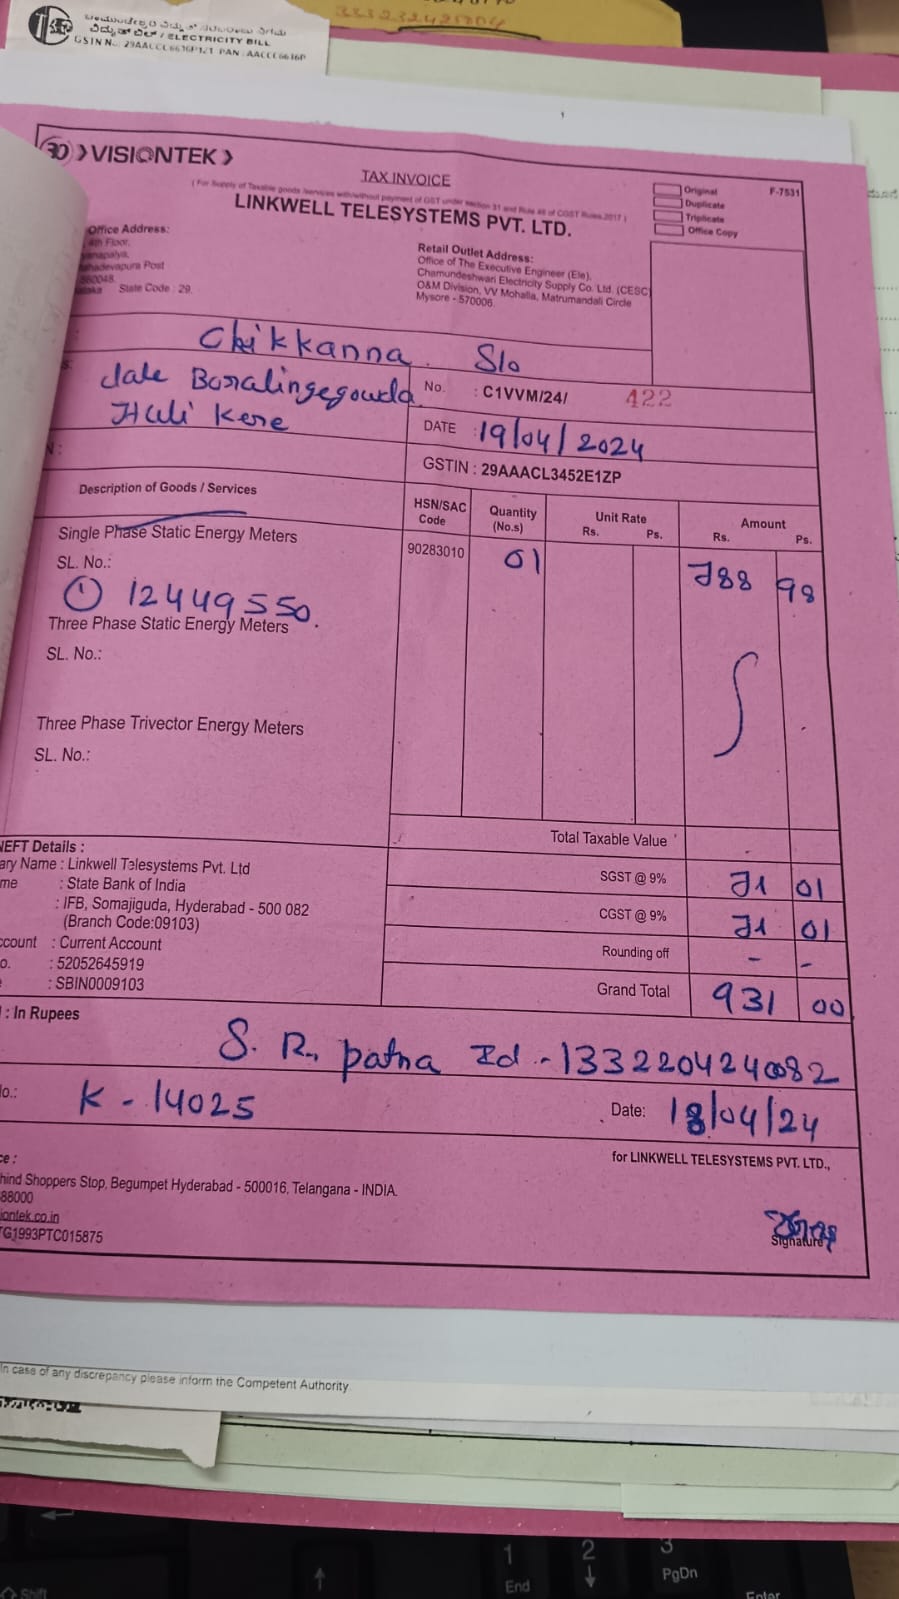 ವಿದ್ಯುತ್ ಬಿಲ್ / ELECTRICITY BILL
GSIN No. 29AACCC6636P1Z1 PAN : AACCC6636P
30 VISIONTEK
TAX INVOICE
(For Supply of Taxable goods /services with/without payment of GST under section 31 and Rule 46 of CGST Rules.2017)
LINKWELL TELESYSTEMS PVT. LTD.
Original
Duplicate
Triplicate
Office Copy
F-7531
Office Address:
4th Floor,
Post
560048.
State Code : 29.
Retail Outlet Address:
Office of The Executive Engineer (Ele),
Chamundeshwari Electricity Supply Co. Ltd. (CESC)
O&M Division, VV Mohalla, Matrumandali Circle
Mysore - 570006.
Chikkanna. S/o
late Boralingegowda
Hali Kere
No. : C1VVM/24/ 422
DATE : 19/04/2024
GSTIN : 29AAACL3452E1ZP
Description of Goods / Services
HSN/SAC Code
Quantity (No.s)
Unit Rate
Rs. Ps.
Amount
Rs. Ps.
Single Phase Static Energy Meters
90283010 01 788 98
SL. No.:
① 12449550.
Three Phase Static Energy Meters
SL. No.:
Three Phase Trivector Energy Meters
SL. No.:
Total Taxable Value -
NEFT Details :
ary Name : Linkwell Telesystems Pvt. Ltd
me : State Bank of India
: IFB, Somajiguda, Hyderabad - 500 082
(Branch Code:09103)
ccount : Current Account
o. : 52052645919
: SBIN0009103
SGST @ 9% 71 01
CGST @ 9% 71 01
Rounding off - -
Grand Total 931 00
: In Rupees
S. R. patna Id - 133220424082
No.: K - 14025
Date: 18/04/24
for LINKWELL TELESYSTEMS PVT. LTD.,
ce :
hind Shoppers Stop, Begumpet Hyderabad - 500016, Telangana - INDIA.
88000
iontek.co.in
TG1993PTC015875
Signature
In case of any discrepancy please inform the Competent Authority
Shift
1
End
2
3
PgDn
Enter